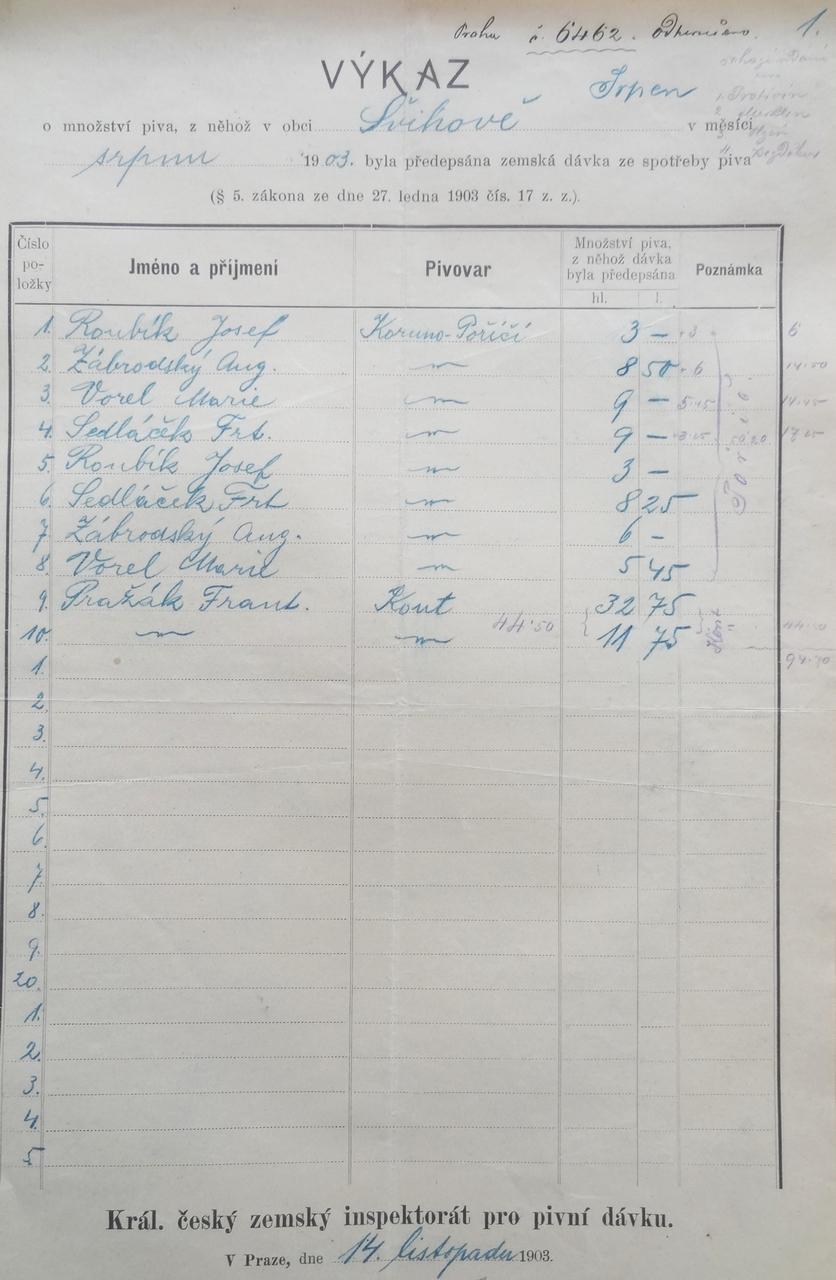 Praha č. 6462. 1.
VÝKAZ
Srpen
o množství piva, z něhož v obci Švihově v měsíci
srpnu 1903. byla předepsána zemská dávka ze spotřeby piva
(§ 5. zákona ze dne 27. ledna 1903 čís. 17 z. z.).
Číslo po-ložky Jméno a příjmení Pivovar Množství piva, z něhož dávka byla předepsána Poznámka
hl. l.
1. Roubík Josef Koruno-Poříčí 3 — + 3 6
2. Zábrodský Aug. — " — 8 50 + 6 14.50
3. Vorel Marie — " — 9 — 5.45 14.45
4. Sedláček Frt. — " — 9 — 17.25
5. Roubík Josef — " — 3 —
6. Sedláček Frt — " — 8 25
7. Zábrodský Aug. — " — 6 -
8. Vorel Marie — " — 5 45
Poříčí
9. Pražák Frant. Kout 32 75
10. — " — — " — 44.50 11 75 Kout 44.50
1. 
2.
3.
4.
5.
6.
7.
8.
9.
20.
1.
2.
3.
4.
5.
Král. český zemský inspektorát pro pivní dávku.
V Praze, dne 14. listopadu 1903.